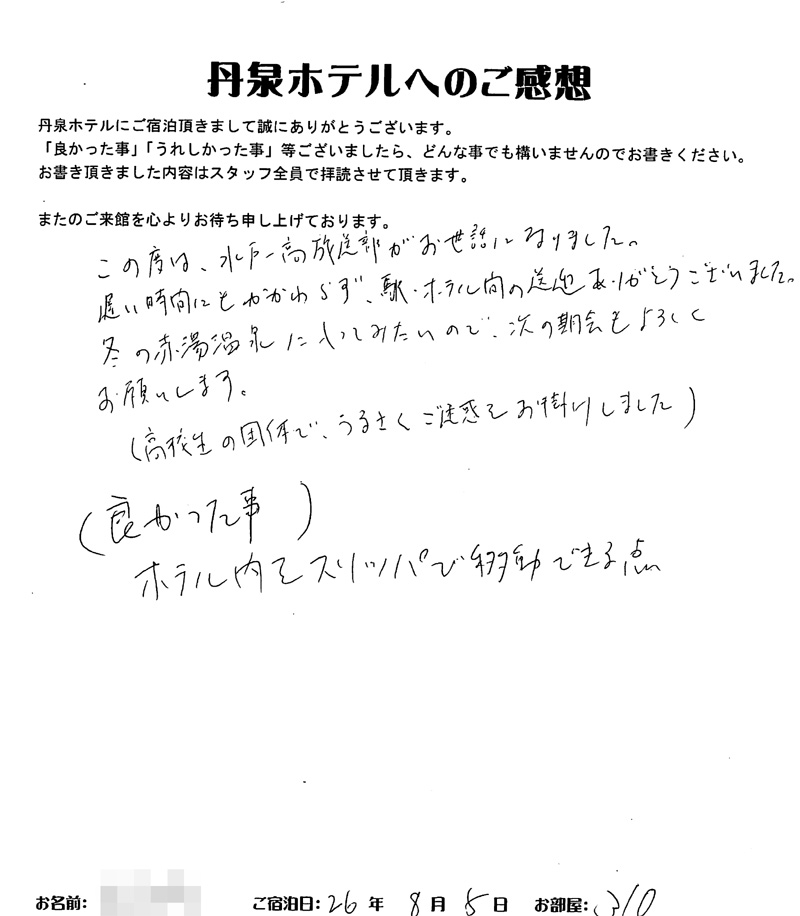 丹泉ホテルへのご感想
丹泉ホテルにご宿泊頂きまして誠にありがとうございます。
「良かった事」「うれしかった事」等ございましたら、どんな事でも構いませんのでお書きください。
お書き頂きました内容はスタッフ全員で拝読させて頂きます。
またのご来館を心よりお待ち申し上げております。
この度は、水戸一高放送部がお世話になりました。
遅い時間にもかかわらず、駅・ホテル間の送迎ありがとうございました。
冬の赤湯温泉に入ってみたいので、次の期会もよろしく
お願いします。
(高校生の団体で、うるさくご迷惑をお掛けしました)
(良かった事)
ホテル内をスリッパで移動できる点
お名前: ご宿泊日: 26 年 8 月 5 日 お部屋: 310